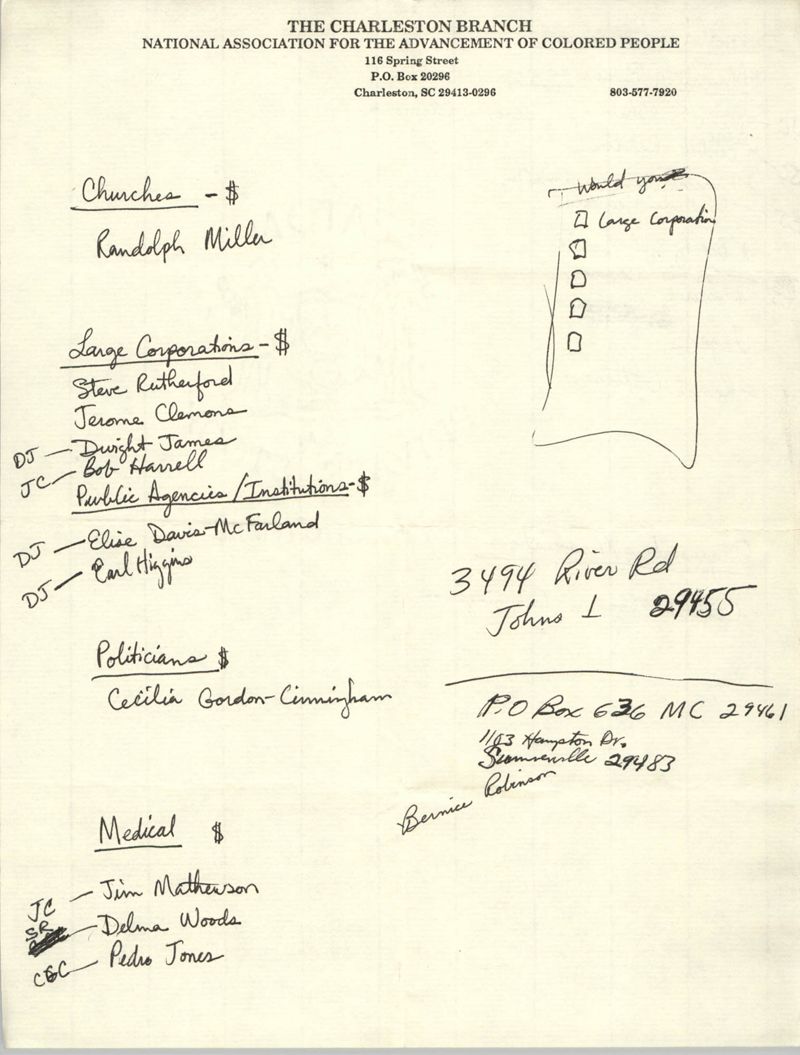 THE CHARLESTON BRANCH
NATIONAL ASSOCIATION FOR THE ADVANCEMENT OF COLORED PEOPLE
116 Spring Street
P.O. Box 20296
Charleston, SC 29413-0296 803-577-7920
Churches - $
Randolph Miller
Would you
Large Corporation
Large Corporations - $
Steve Rutherford
Jerome Clemons
DJ - Dwight James
JC - Bob Harrell
Public Agencies / Institutions - $
DJ - Elise Davis-McFarland
DJ - Earl Higgins
3494 River Rd
Johns I 29455
Politicians $
Cecilia Gordon-Cunningham
P.O Box 636 MC 29461
1103 Hampton Dr.
Summerville 29483
Bernice Robinson
Medical $
JC - Jim Mathewson
SR - Delma Woods
CGC - Pedro Jones